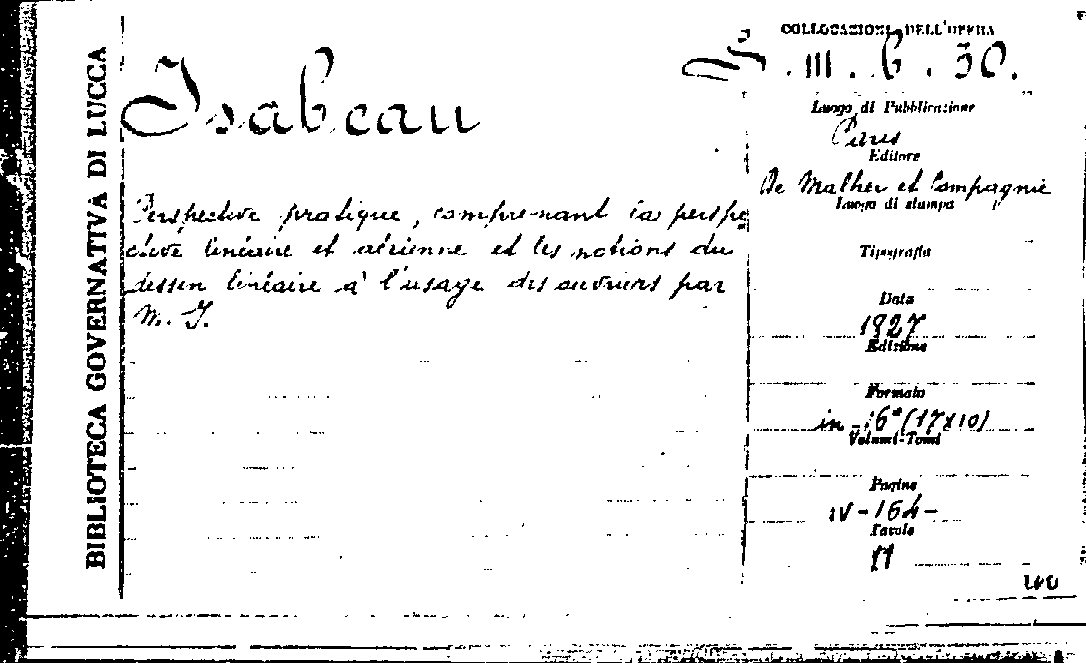 BIBLIOTECA GOVERNATIVA DI LUCCA
Isabeau
Perspective pratique, comprenant la perspe
ctive linéaire et aérienne et les notions du
dessin linéaire à l'usage des ouvriers par
M. I.
COLLOCAZIONE DELL'OPERA
. III . 6 . 30.
Luogo di Pubblicazione
Paris
Editore
De Malher et Compagnie
Luogo di stampa
Tipografia
Data
1827
Edizione
Formato
in-16° (17x10)
Volumi-Tomi
Pagine
IV-164-
Tavole
11